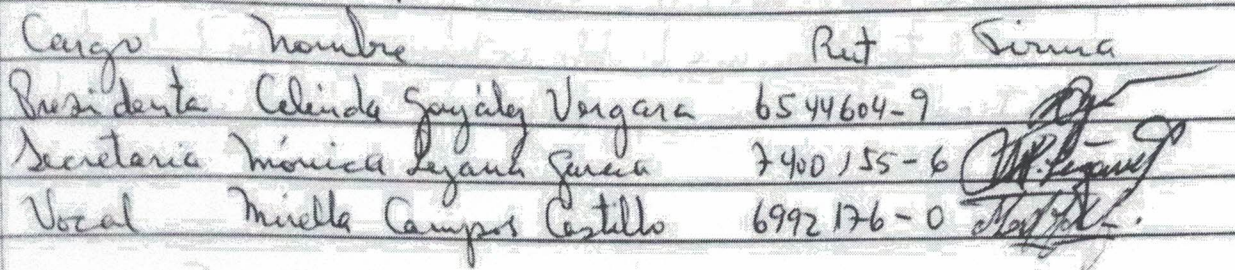 Cargo Nombre Rut Firma
Presidenta Celinda González Vergara 6544604-9
Secretaria Mónica Lezana García 7400155-6
Vocal Mirella Campos Castillo 6992176-0